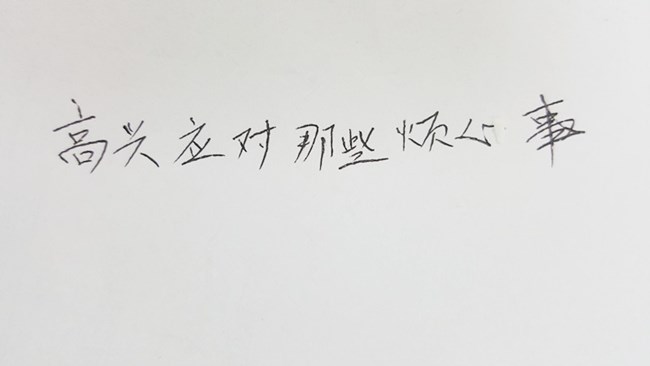 高兴应对那些烦心事